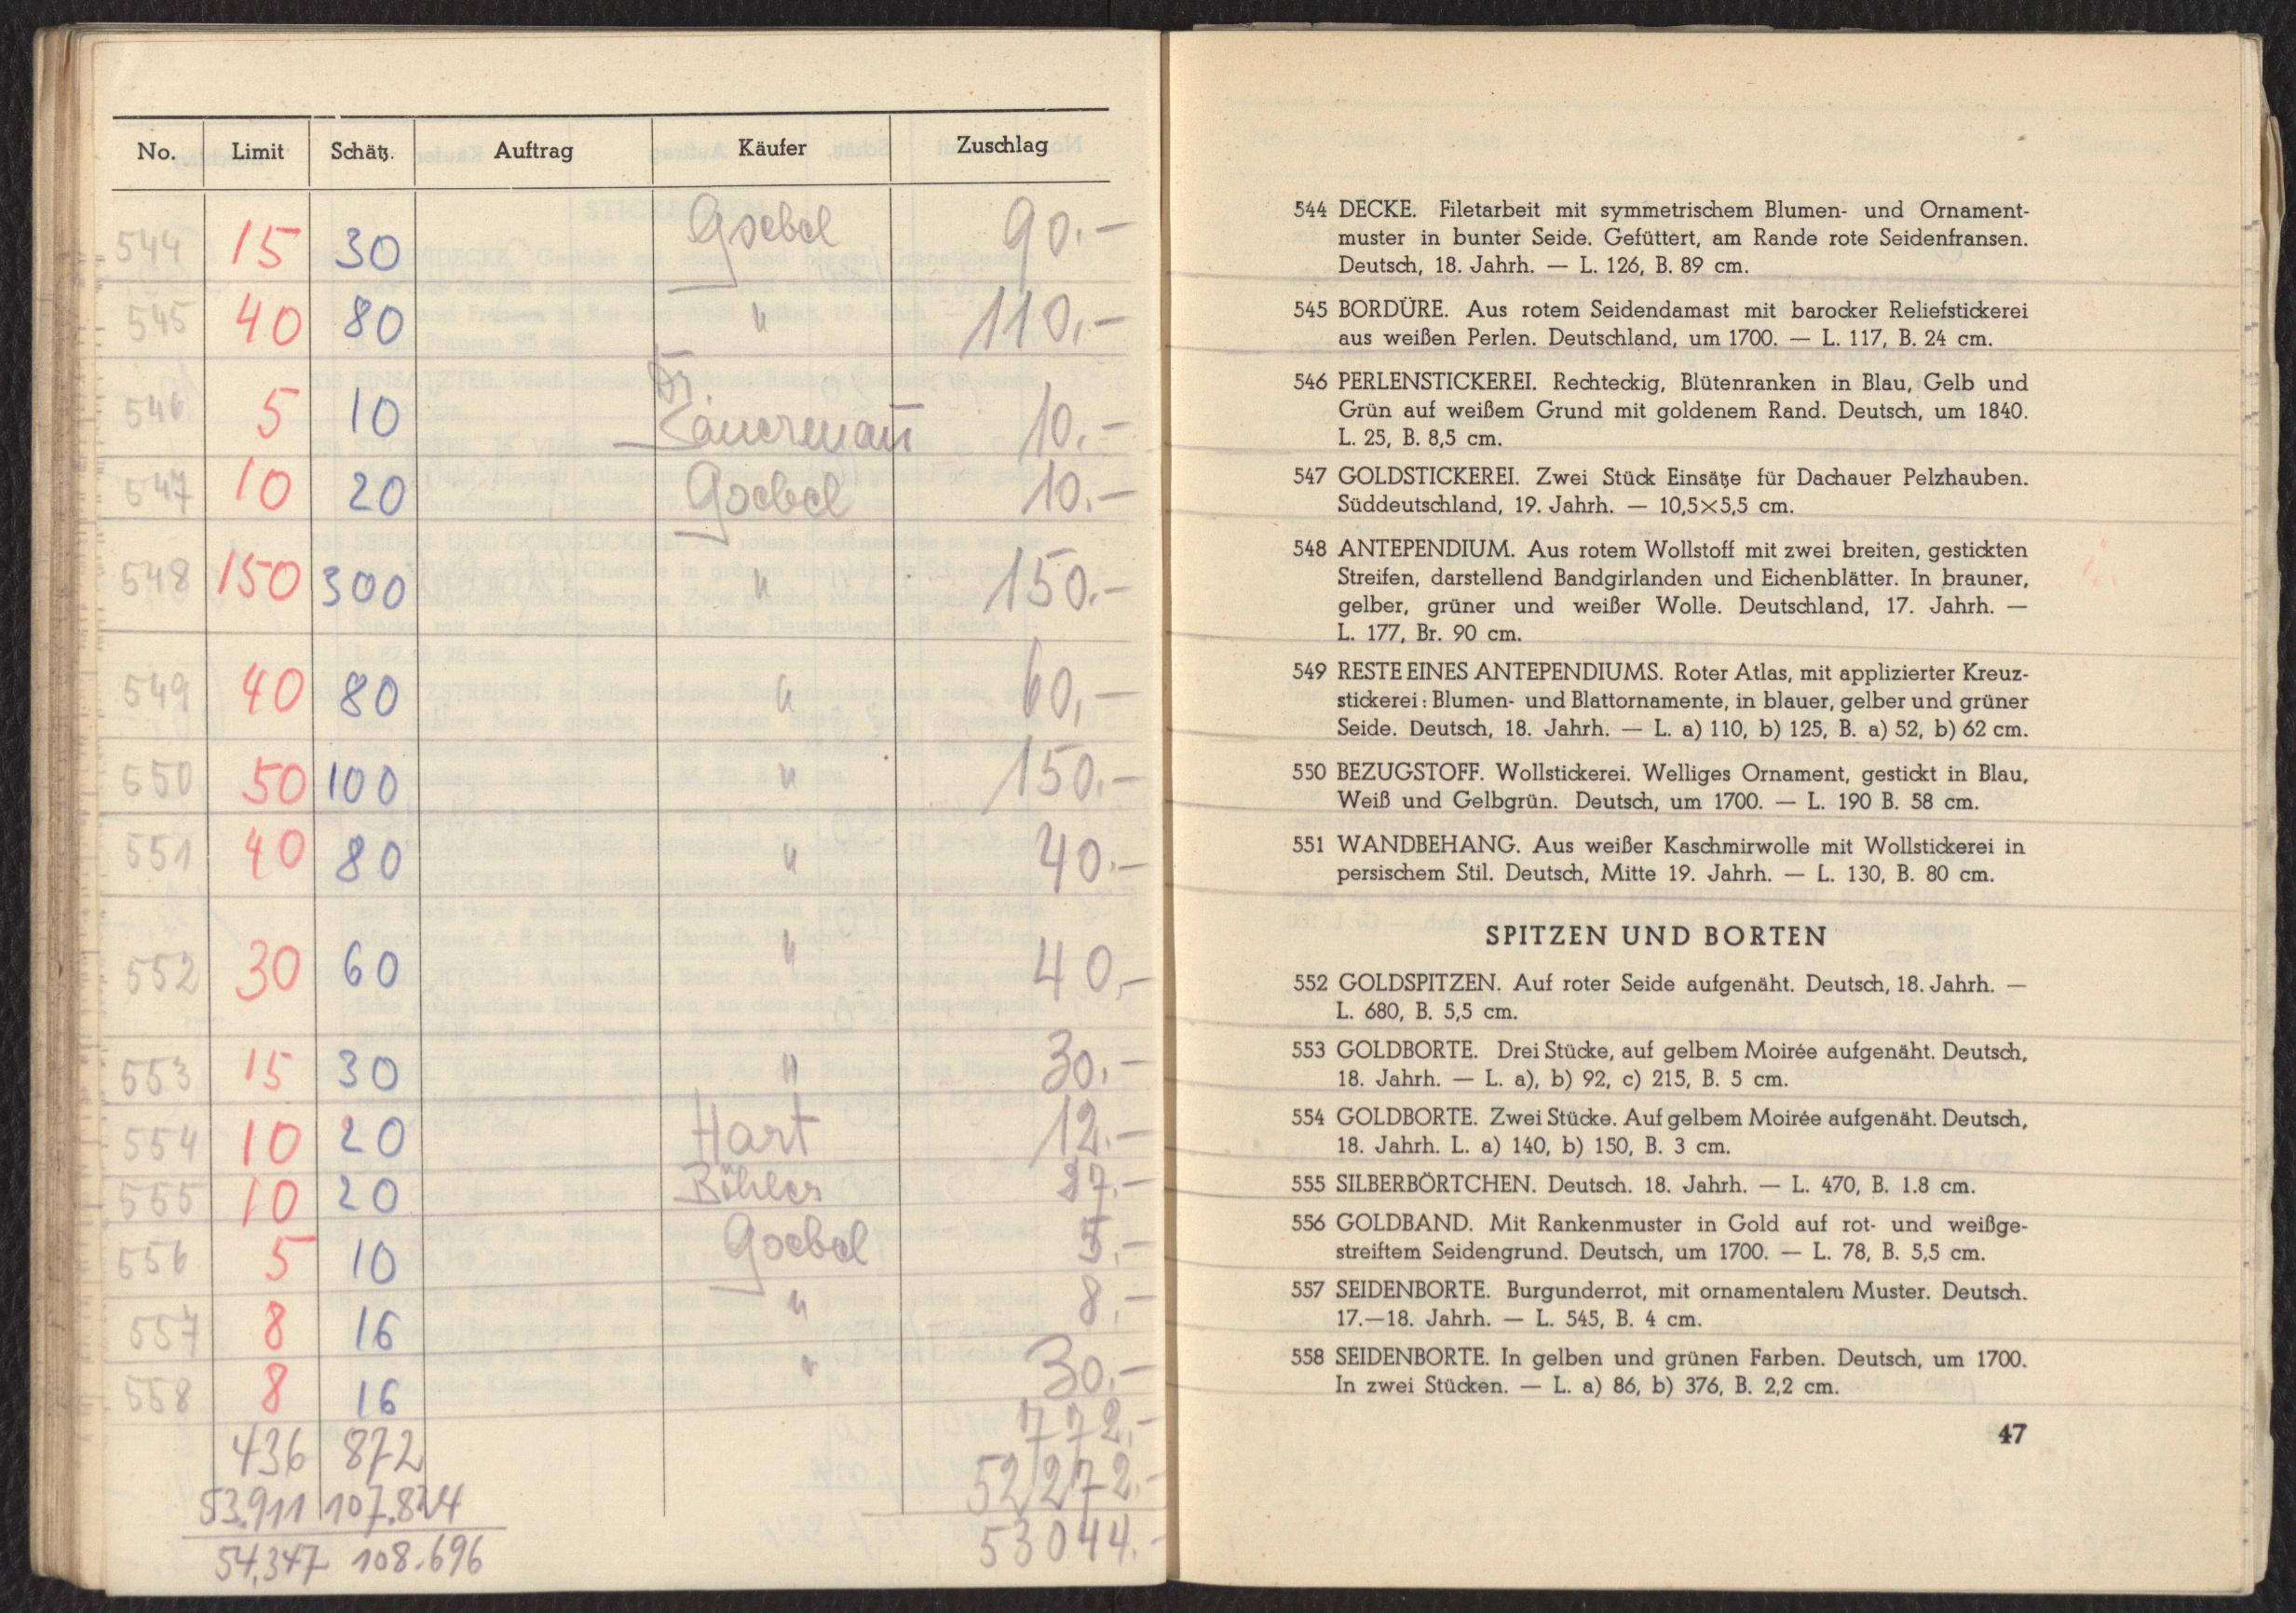 No. Limit Schätz. Auftrag Käufer Zuschlag
544 15 30 Goebel 90.-
545 40 80 " 110.-
546 5 10 Dr. Sauerman̄ 10.-
547 10 20 Goebel 10.-
548 150 300 " 150.-
549 40 80 " 60,-
550 50 100 " 150.-
551 40 80 " 40.-
552 30 60 " 40,-
553 15 30 " 30.-
554 10 20 Hart 12.-
555 10 20 Böhler 27.-
556 5 10 Goebel 5.-
557 8 16 " 8.-
558 8 16 " 30.-
436 872 772.-
53.911 107.824 52272.-
54.347 108.696 53044.-
544 DECKE. Filetarbeit mit symmetrischem Blumen- und Ornament-
muster in bunter Seide. Gefüttert, am Rande rote Seidenfransen.
Deutsch, 18. Jahrh. — L. 126, B. 89 cm.
545 BORDÜRE. Aus rotem Seidendamast mit barocker Reliefstickerei
aus weißen Perlen. Deutschland, um 1700. — L. 117, B. 24 cm.
546 PERLENSTICKEREI. Rechteckig, Blütenranken in Blau, Gelb und
Grün auf weißem Grund mit goldenem Rand. Deutsch, um 1840.
L. 25, B. 8,5 cm.
547 GOLDSTICKEREI. Zwei Stück Einsätze für Dachauer Pelzhauben.
Süddeutschland, 19. Jahrh. — 10,5×5,5 cm.
548 ANTEPENDIUM. Aus rotem Wollstoff mit zwei breiten, gestickten
Streifen, darstellend Bandgirlanden und Eichenblätter. In brauner,
gelber, grüner und weißer Wolle. Deutschland, 17. Jahrh. —
L. 177, Br. 90 cm.
549 RESTE EINES ANTEPENDIUMS. Roter Atlas, mit applizierter Kreuz-
stickerei : Blumen- und Blattornamente, in blauer, gelber und grüner
Seide. Deutsch, 18. Jahrh. — L. a) 110, b) 125, B. a) 52, b) 62 cm.
550 BEZUGSTOFF. Wollstickerei. Welliges Ornament, gestickt in Blau,
Weiß und Gelbgrün. Deutsch, um 1700. — L. 190 B. 58 cm.
551 WANDBEHANG. Aus weißer Kaschmirwolle mit Wollstickerei in
persischem Stil. Deutsch, Mitte 19. Jahrh. — L. 130, B. 80 cm.
SPITZEN UND BORTEN
552 GOLDSPITZEN. Auf roter Seide aufgenäht. Deutsch, 18. Jahrh. —
L. 680, B. 5,5 cm.
553 GOLDBORTE. Drei Stücke, auf gelbem Moirée aufgenäht. Deutsch,
18. Jahrh. — L. a), b) 92, c) 215, B. 5 cm.
554 GOLDBORTE. Zwei Stücke. Auf gelbem Moirée aufgenäht. Deutsch,
18. Jahrh. L. a) 140, b) 150, B. 3 cm.
555 SILBERBÖRTCHEN. Deutsch. 18. Jahrh. — L. 470, B. 1.8 cm.
556 GOLDBAND. Mit Rankenmuster in Gold auf rot- und weißge-
streiftem Seidengrund. Deutsch, um 1700. — L. 78, B. 5,5 cm.
557 SEIDENBORTE. Burgunderrot, mit ornamentalem Muster. Deutsch.
17.—18. Jahrh. — L. 545, B. 4 cm.
558 SEIDENBORTE. In gelben und grünen Farben. Deutsch, um 1700.
In zwei Stücken. — L. a) 86, b) 376, B. 2,2 cm.
47